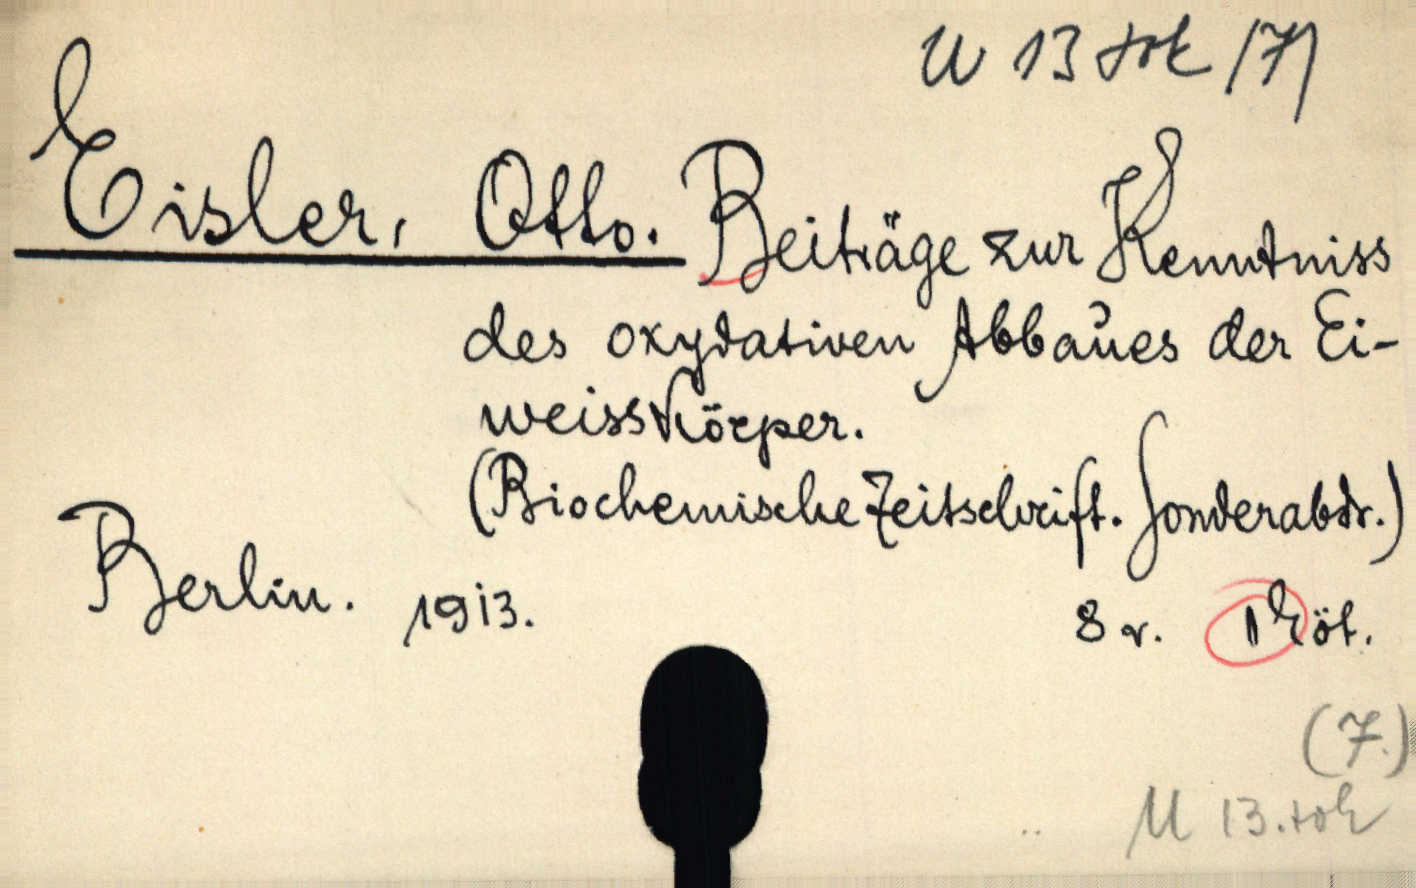 U 13 tok /7/
Eisler, Otto. Beiträge zur Kenntniss
des oxydativen Abbaues der Ei-
weisskörper.
(Biochemische Zeitschrift. Sonderabdr.)
Berlin. 1913. 8 r. 1 köt.
(7.)
U 13.tok